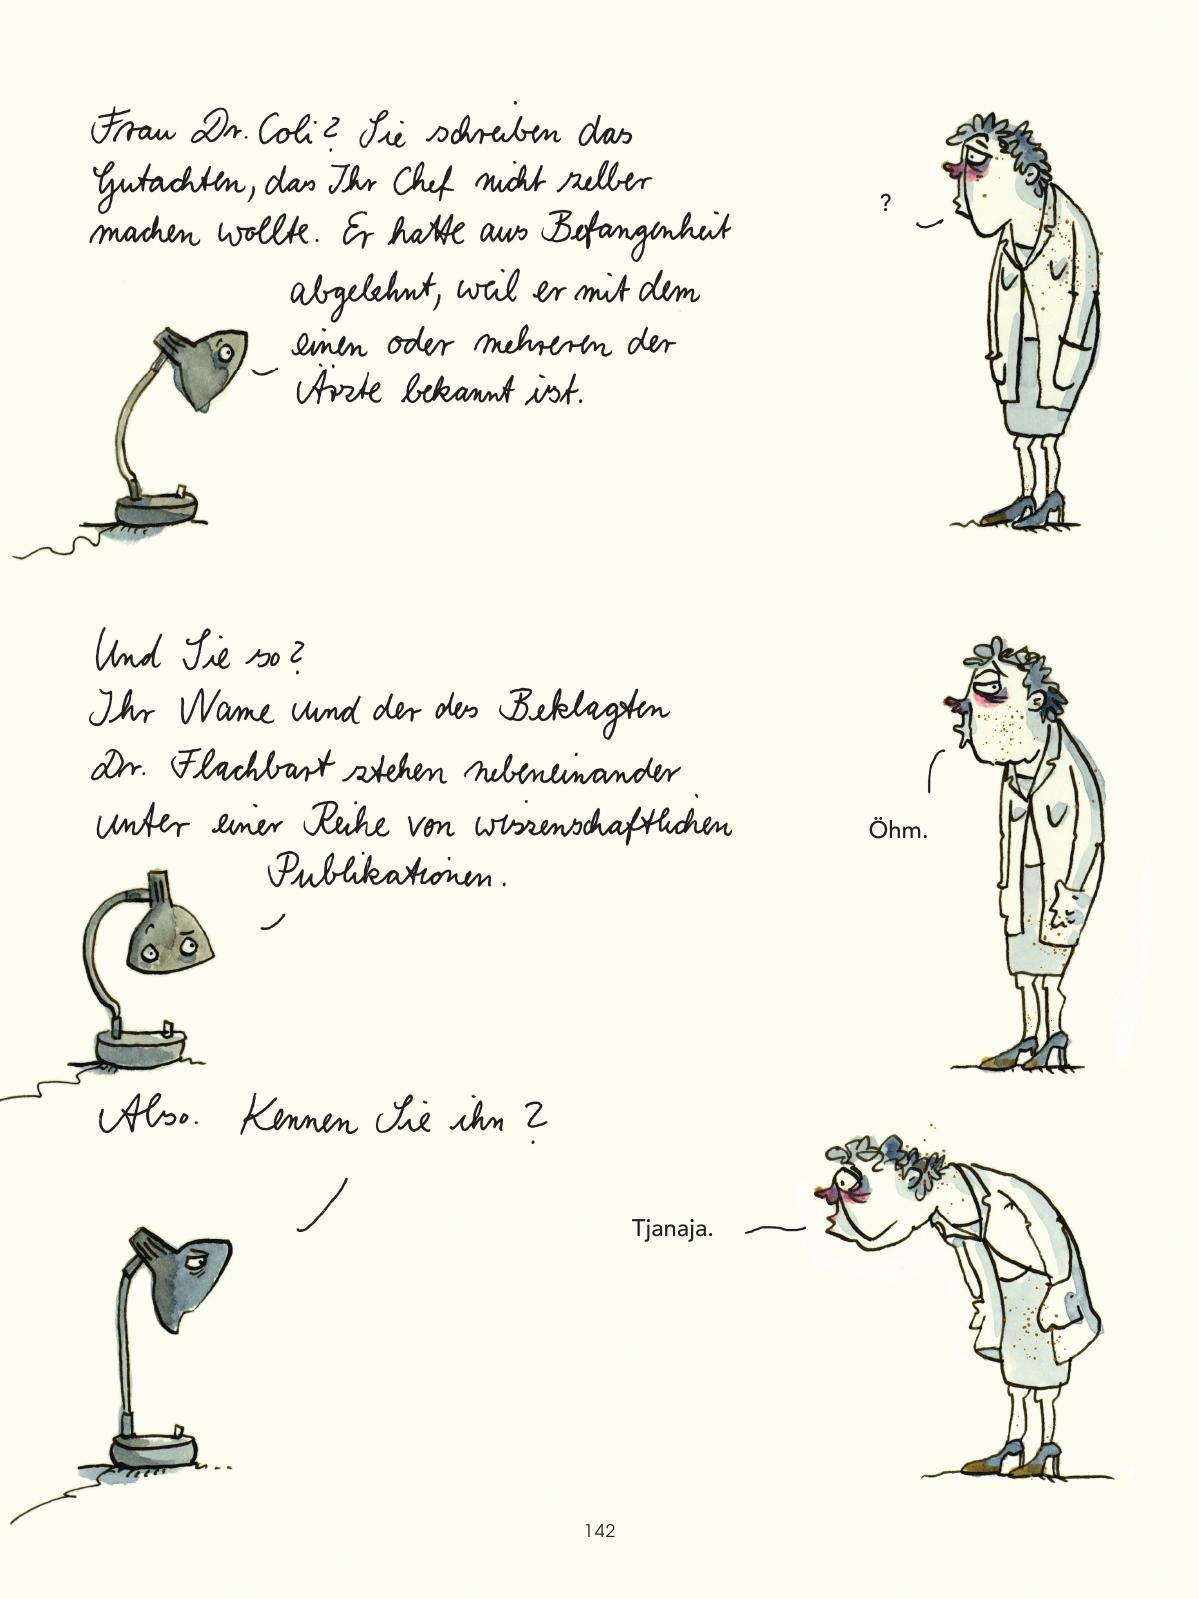 Frau Dr. Coli? Sie schreiben das
Gutachten, das Ihr Chef nicht selber
machen wollte. Er hatte aus Befangenheit
abgelehnt, weil er mit dem
einen oder mehreren der
Ärzte bekannt ist.
?
Und Sie so?
Ihr Name und der des Beklagten
Dr. Flachbart stehen nebeneinander
unter einer Reihe von wissenschaftlichen
Publikationen.
Öhm.
Also. Kennen Sie ihn?
Tjanaja.
142